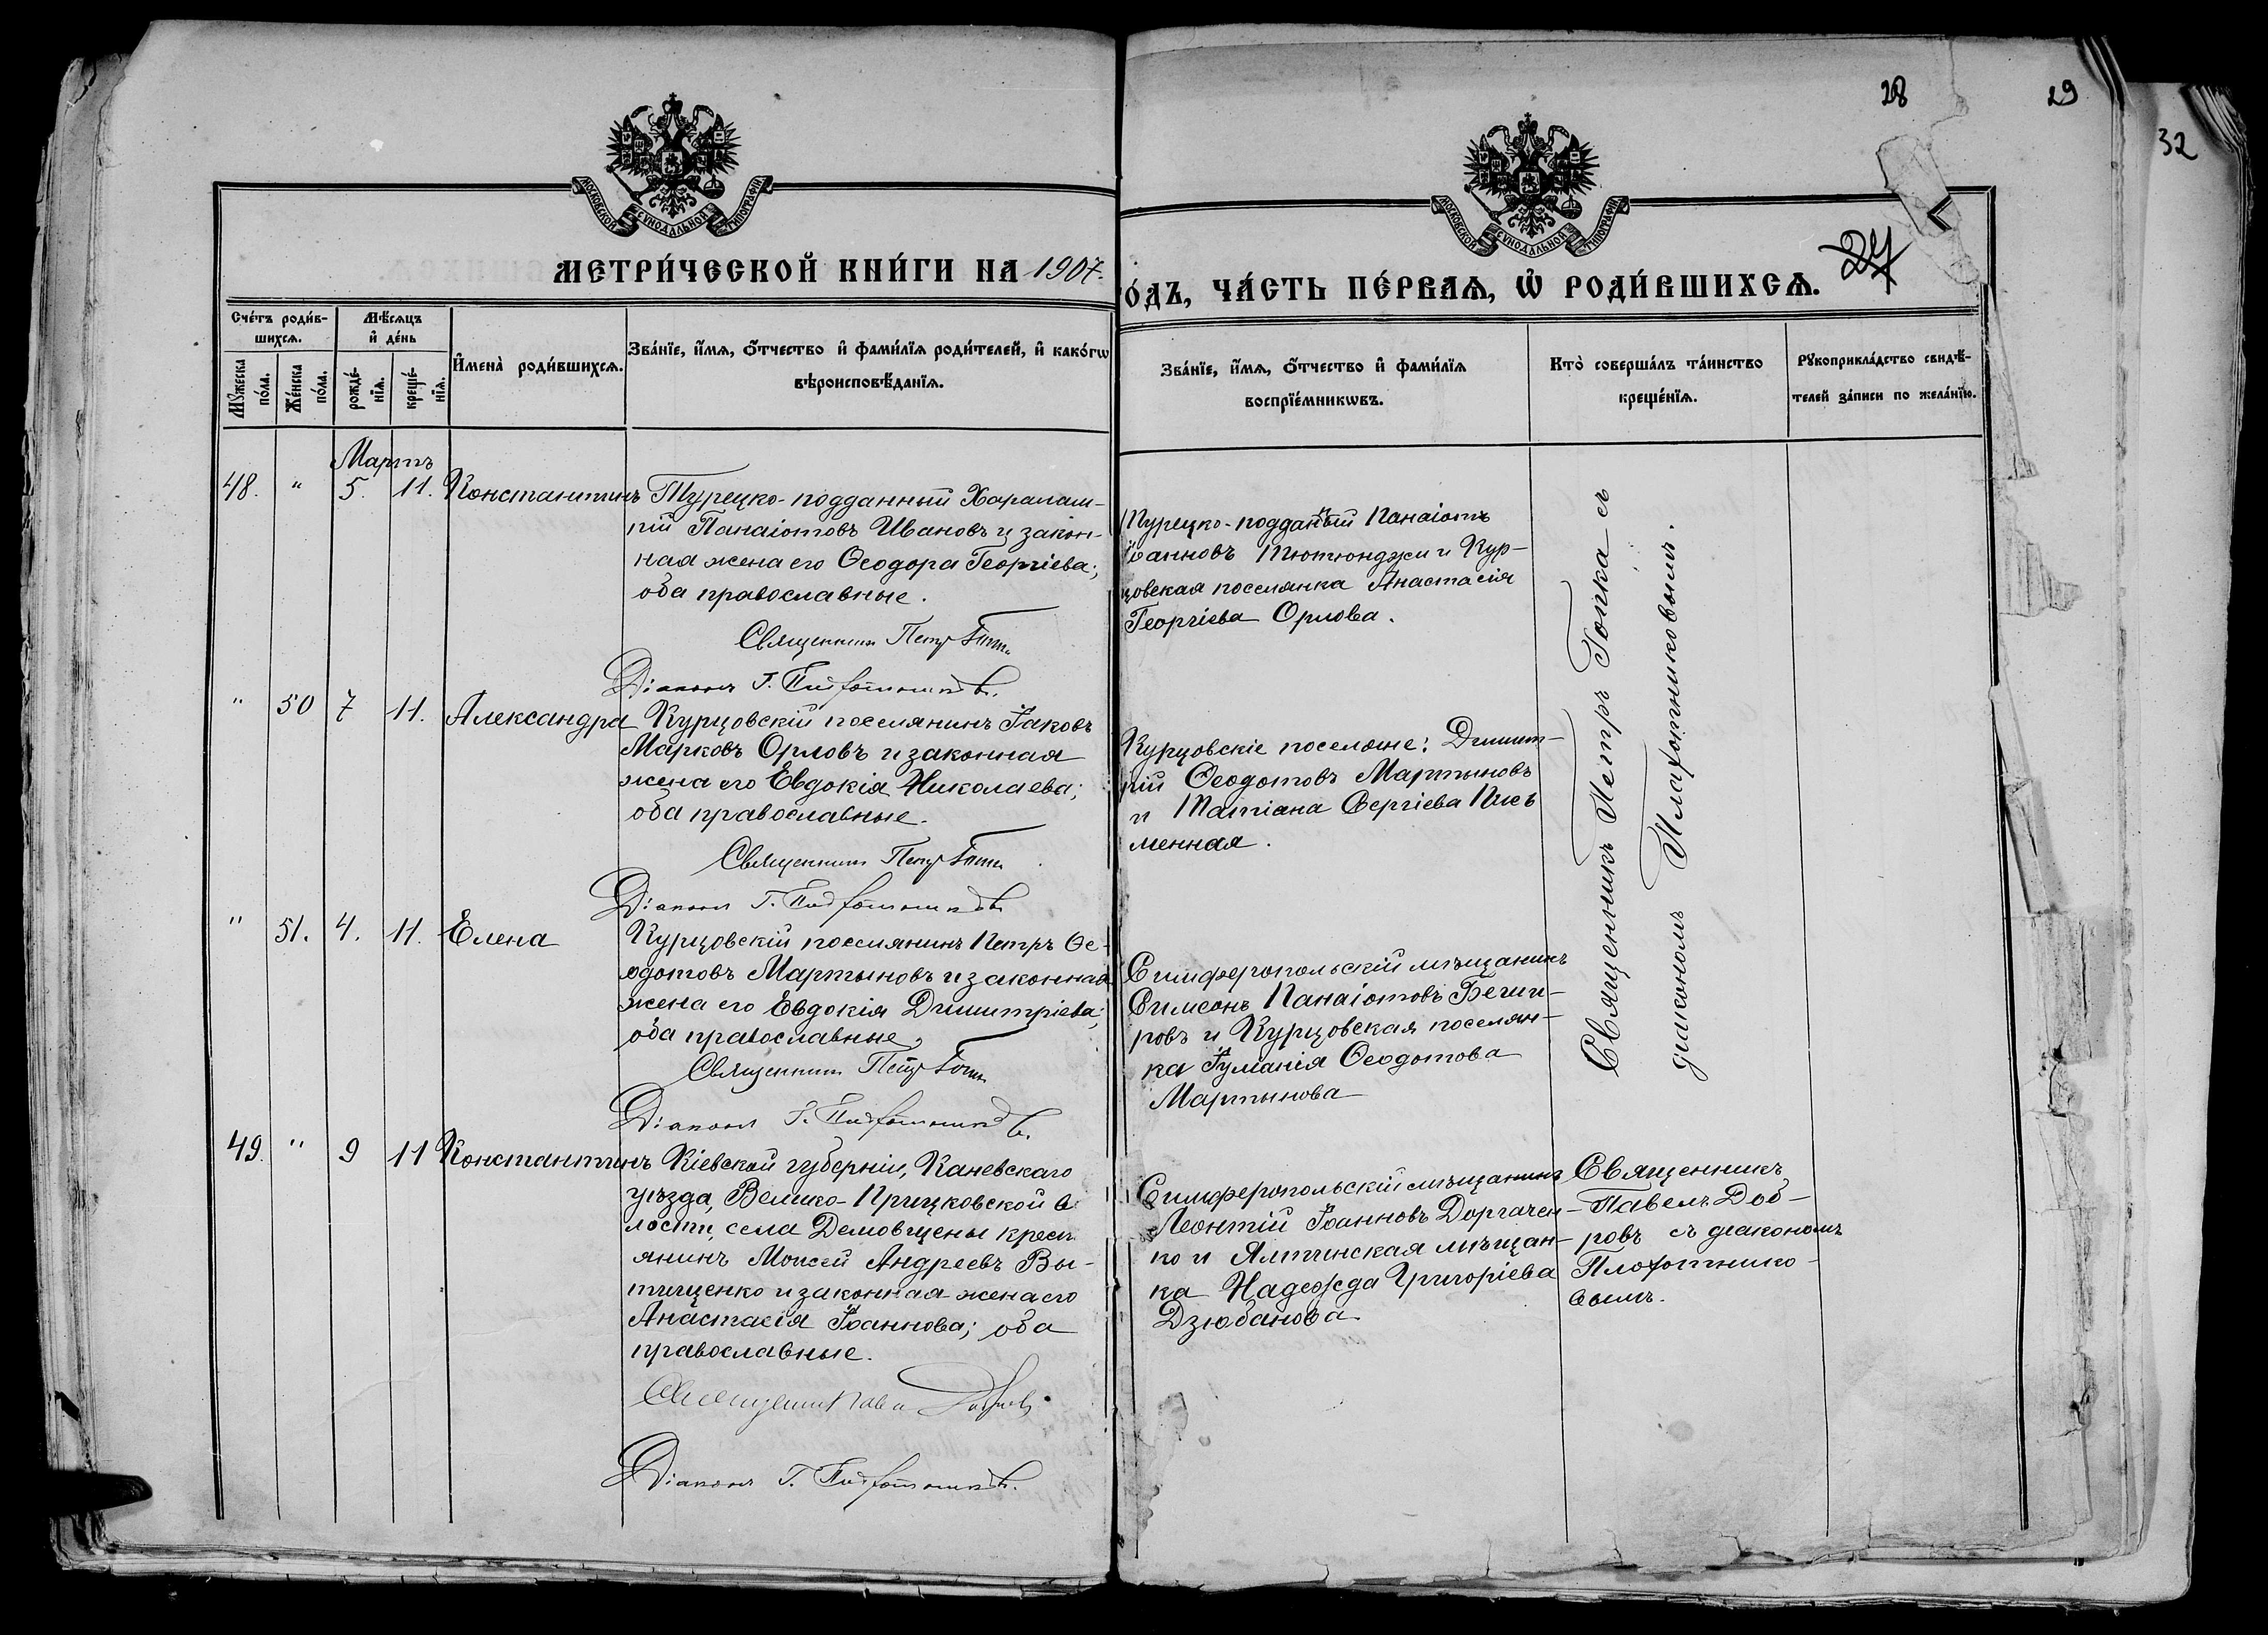 28
29
32
МОСКОВСКОЙ СѴНОДАЛЬНОЙ ТИПОГРАФІИ
МОСКОВСКОЙ СѴНОДАЛЬНОЙ ТИПОГРАФІИ
МЕТРИ́ЧЕСКОЙ КНИ́ГИ НА 1907.
О́ДЪ, ЧА́СТЬ ПЕ́РВАѦ, Ѡ҆ РОДИ́ВШИХСѦ.
24
Сче́тъ роди́в-
шихсѧ.
Мѣ́сѧцъ
и҆ де́нь
Мꙋ́жеска
по́ла.
Же́нска
по́ла.
рожде́-
нїѧ.
креще́-
нїѧ.
И҆мена̀ роди́вшихсѧ.
Зва́нїе, и҆́мѧ, ѻ҆́тчество и҆ фами́лїѧ роди́телей, и҆ како́гѡ
вѣроисповѣ́данїѧ.
Зва́нїе, и҆́мѧ, ѻ҆́тчество и҆ фами́лїѧ
воспрїе́мникѡвъ.
Кто̀ соверша́лъ та́инство
креще́нїѧ.
Рꙋкоприкла́дство свидѣ́-
телей за́писи по жела́нїю.
Мартъ
48. " 5. 11. Константинъ
Турецко-подданный Харалам-
пій Панаіотовъ Ивановъ и закон-
ная жена его Ѳеодора Георгіева;
оба православные.
Священникъ Петръ Гопка
Діаконъ Г. Плаѳотниковъ.
Турецко-подданый Панаіотъ
Іоанновъ Тютюнджи и Кур-
цовская поселянка Анастасія
Георгіева Орлова.
Священникъ Петръ Гопка съ
діакономъ Плаѳотниковымъ.
" 50 7 11. Александра
Курцовскій поселянинъ Іаковъ
Марковъ Орловъ и законная
жена его Евдокія Николаева;
оба православные.
Священникъ Петръ Гопка
Діаконъ Г. Плаѳотниковъ
Курцовскіе поселяне: Димит-
рій Ѳеодотовъ Мартыновъ
и Татіана Сергіева Пись
менная.
" 51. 4. 11. Елена
Курцовскій поселянинъ Петръ Ѳе-
одотовъ Мартыновъ и законная
жена его Евдокія Димитріева;
оба православные,
Священникъ Петръ Гопка
Діаконъ Г. Плаѳотниковъ.
Симферопольскій мѣщанинъ
Симеонъ Панаіотовъ Бечи-
ровъ и Курцовская поселян-
ка Іуліанія Ѳеодотова
Мартынова
49. " 9 11 Константинъ
Кіевской губерніи, Каневскаго
уѣзда, Велико-Прицковской во
лости, села Демовщены кресть
янинъ Моисей Андреевъ Вы-
тищенко и законная жена его
Анастасія Іоаннова; оба
православные.
Священникъ Павелъ Добровъ
Діаконъ Г. Плаѳотниковъ.
Симферопольскій мѣщанинъ
Леонтій Іоанновъ Доргачен-
ко и Ялтинская мѣщан-
ка Надежда Григоріева
Дзюбанова
Священникъ
Павелъ Доб-
ровъ съ діакономъ
Плоѳотнико-
вымъ.